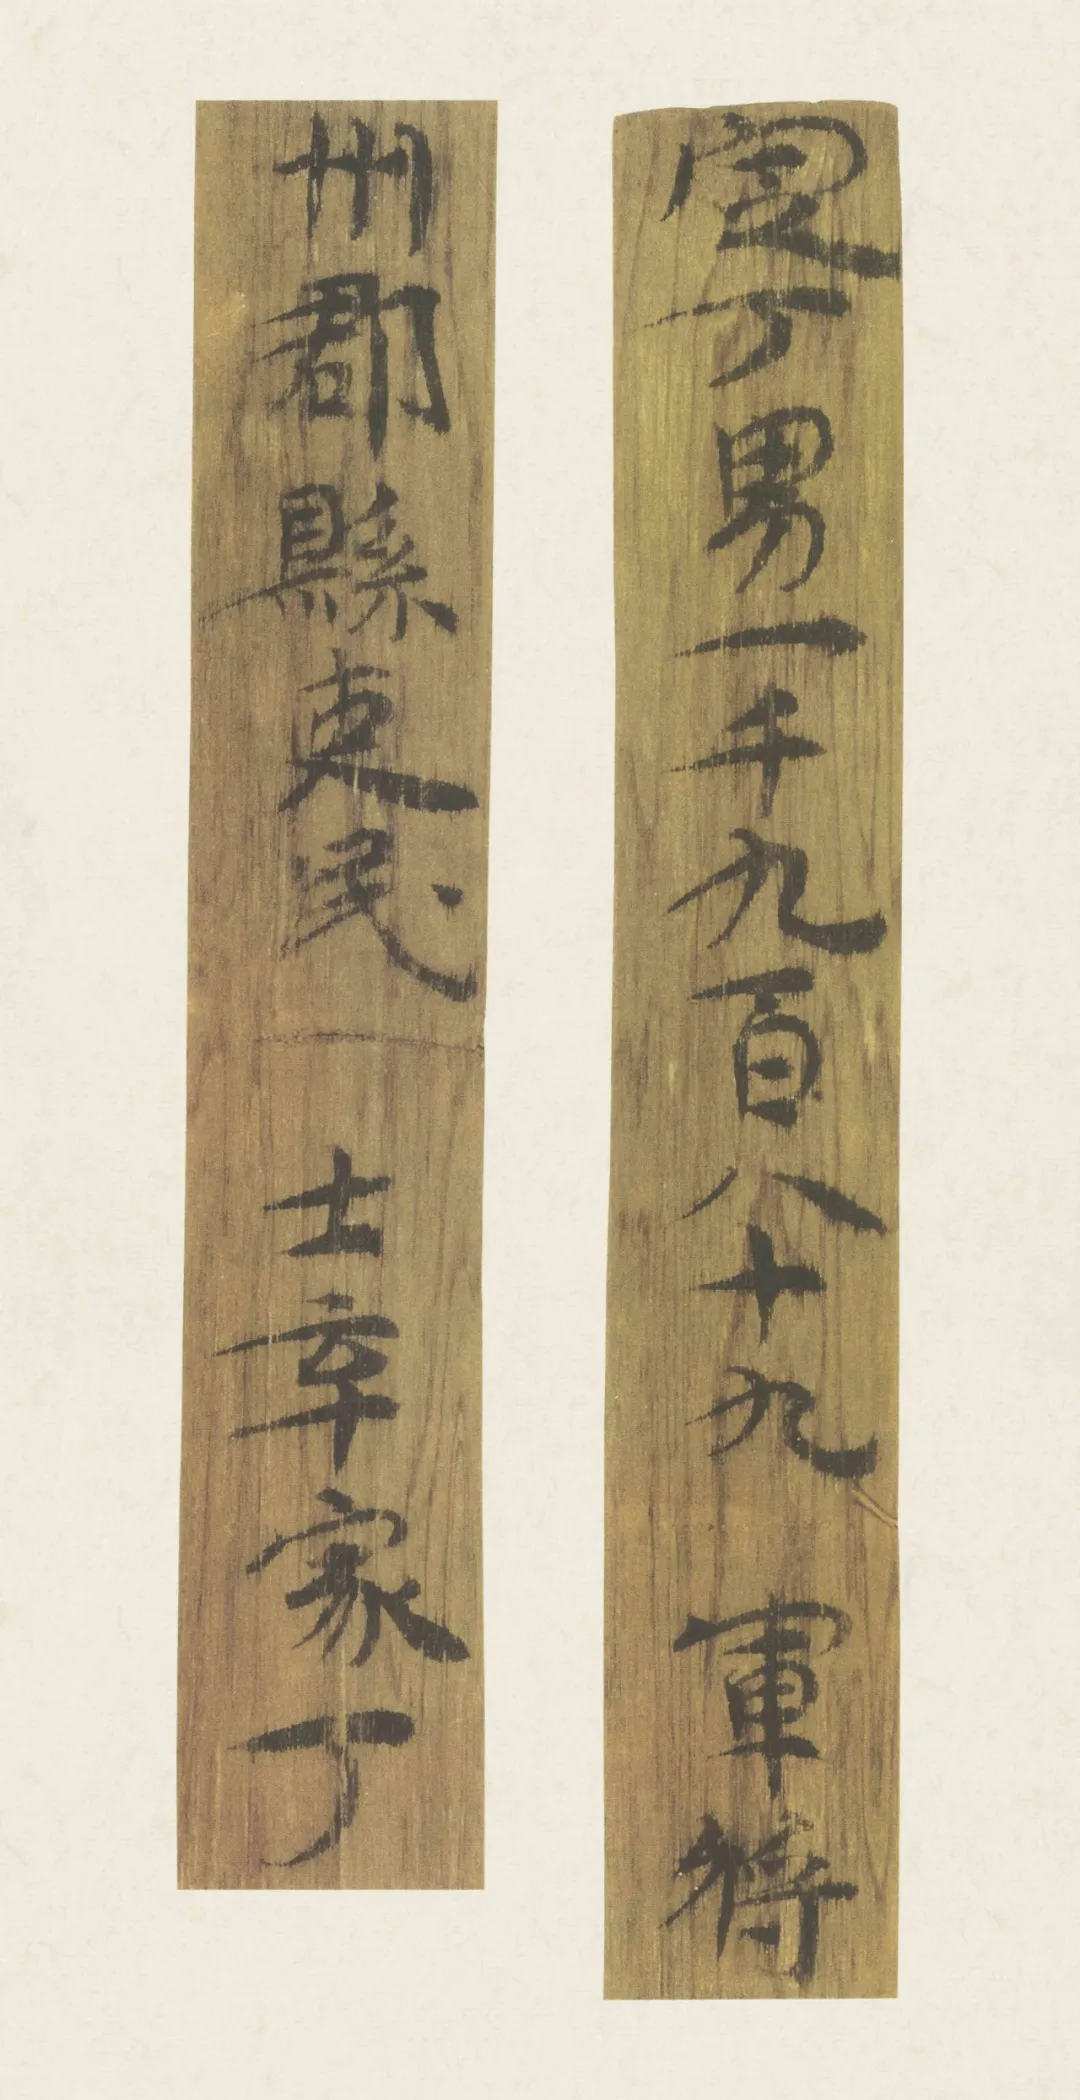 定丁男一千九百八十九 軍將
州郡縣吏民 士卒家丁